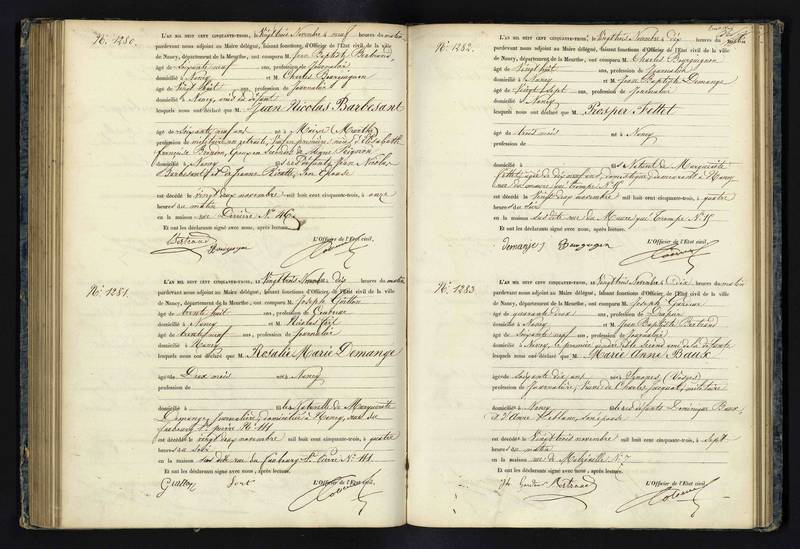 N.º 1280.
L'AN MIL HUIT CENT CINQUANTE-TROIS, le Vingt trois Novembre à neuf heures du matin
pardevant nous adjoint au Maire délégué, faisant fonctions d'Officier de l'État civil de la ville
de Nancy, département de la Meurthe, ont comparu M. Jean Baptiste Bertrand,
âgé de soixante neuf ans, profession de Journalier
domicilié à Nancy et M. Charles Bourguignon
âgé de vingt huit ans, profession de Journalier
domicilié à Nancy
lesquels nous ont déclaré que M. Jean Nicolas Barbesant
âgé de soixante neuf ans né à (Meurthe)
profession de militaire en retraite, d'Elisabeth
françoise
domicilié à Nancy Jean Nicolas
Barbesant et de Jeanne son épouse
est décédé le vingt deux novembre mil huit cent cinquante-trois, à onze
heures du matin
en la maison rue Derrière N.º 46
Et ont les déclarants signé avec nous, après lecture.
Bertrand Bourguignon L'Officier de l'État civil,
N.º 1281.
L'AN MIL HUIT CENT CINQUANTE-TROIS, le Vingt trois Novembre à dix heures du matin
pardevant nous adjoint au Maire délégué, faisant fonctions d'Officier de l'État civil de la ville
de Nancy, département de la Meurthe, ont comparu M. Joseph
âgé de trente huit ans, profession de
domicilié à Nancy et M. Nicolas
âgé de trente neuf ans, profession de Journalier
domicilié à Nancy
lesquels nous ont déclaré que M. Rosalie Marie Demange
âgée de Deux mois née à Nancy
profession de
domicilié à Naturelle de Marguerite
Demange, journalière, domiciliée à Nancy, rue du
faubourg St. pierre N.º 111
est décédée le vingt deux novembre mil huit cent cinquante-trois, à quatre
heures du soir
en la maison sus dite rue du faubourg St. pierre N.º 111.
Et ont les déclarants signé avec nous, après lecture.
L'Officier de l'État civil,
N.º 1282.
L'AN MIL HUIT CENT CINQUANTE-TROIS, le Vingt trois Novembre à dix heures du matin
pardevant nous adjoint au Maire délégué, faisant fonctions d'Officier de l'État civil de la ville
de Nancy, département de la Meurthe, ont comparu M. Charles Bourguignon
âgé de vingt huit ans, profession de Journalier
domicilié à Nancy et M. Jean Baptiste Demange
âgé de vingt sept ans, profession de Journalier
domicilié à Nancy
lesquels nous ont déclaré que M. Prosper Fottet
âgé de trois mois né à Nancy
profession de
domicilié à Naturel de Marguerite
Fottet, âgée de dix neuf ans, domestique, demeurant à Nancy
rue du maure qui trompe N.º 15
est décédé le Vingt deux novembre mil huit cent cinquante-trois, à quatre
heures du soir
en la maison sus dite rue du Maure qui Trompe N.º 15
Et ont les déclarants signé avec nous, après lecture.
Demange J Bourguignon L'Officier de l'État civil,
N.º 1283
L'AN MIL HUIT CENT CINQUANTE-TROIS, le Vingt trois Novembre à Dix heures du matin
pardevant nous adjoint au Maire délégué, faisant fonctions d'Officier de l'État civil de la ville
de Nancy, département de la Meurthe, ont comparu M. Joseph
âgé de quarante deux ans, profession de
domicilié à Nancy et M. Jean Baptiste Bertrand
âgé de Soixante neuf ans, profession de Journalier
domicilié à Nancy, le premier gendre et le second ami de la défunte
lesquels nous ont déclaré que M. Marie Anne Baux
âgée de Soixante dix ans née à (Vosges)
profession de Journalière, Veuve de Charles Jacquot, militaire
domicilié à Nancy des défunts Dominique Baux,
et d'Anne son épouse
est décédée le Vingt trois novembre mil huit cent cinquante-trois, à Sept
heures du matin
en la maison rue de Malzéville N.º 7
Et ont les déclarants signé avec nous, après lecture.
Bertrand L'Officier de l'État civil,